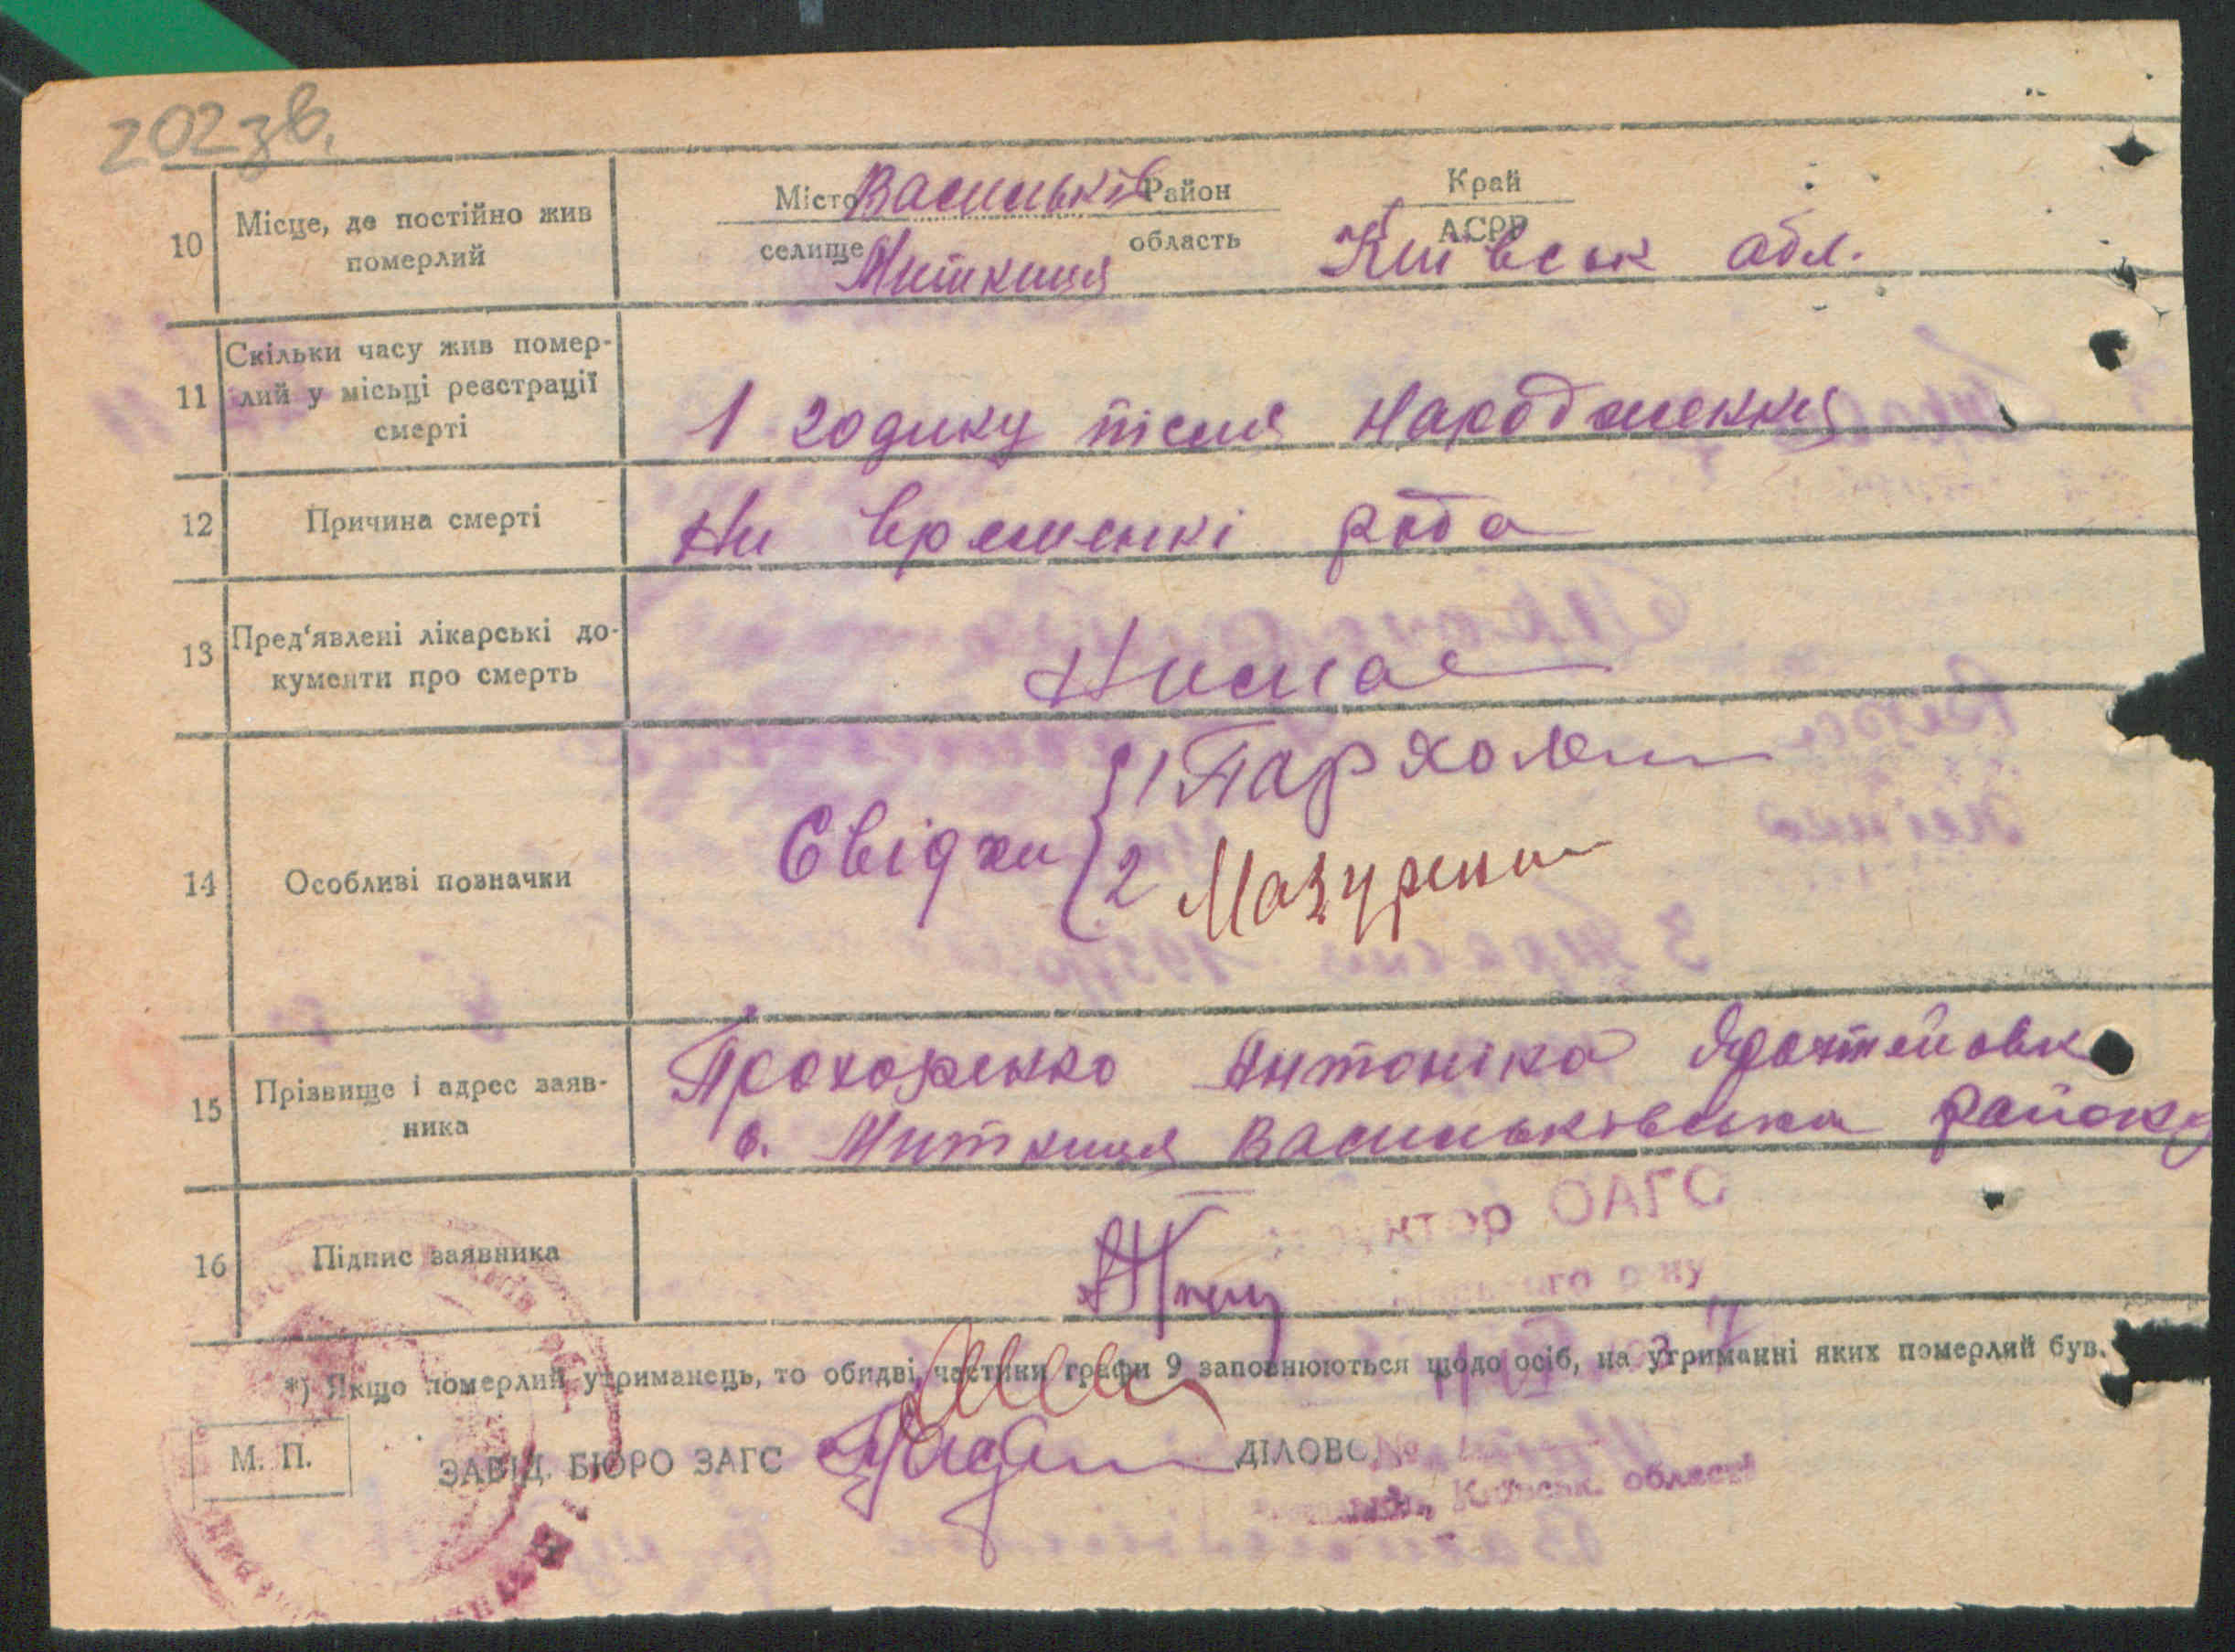 202зв.
10 Місце, де постійно жив померлий
Місто Васильків Район Край
селище Митниця область АСРР Київськ обл.
11 Скільки часу жив помер-
лий у місьці реєстрації
смерті
1 годину після народження
12 Причина смерті
Ни временні рода
13 Пред'явлені лікарські до-
кументи про смерть
Нимає
14 Особливі позначки
Свідки 1 Пархомен
2 Мазурен
15 Прізвище і адрес заяв-
ника
Прохоренко Антоніна
с. Митниця Васильківська району
16 Підпис заявника
*) Якщо померлий утриманець, то обидві частини графи 9 заповнюються щодо осіб, на утриманні яких померлий був.
М. П.
ЗАВІД. БЮРО ЗАГС
ДІЛОВО
області